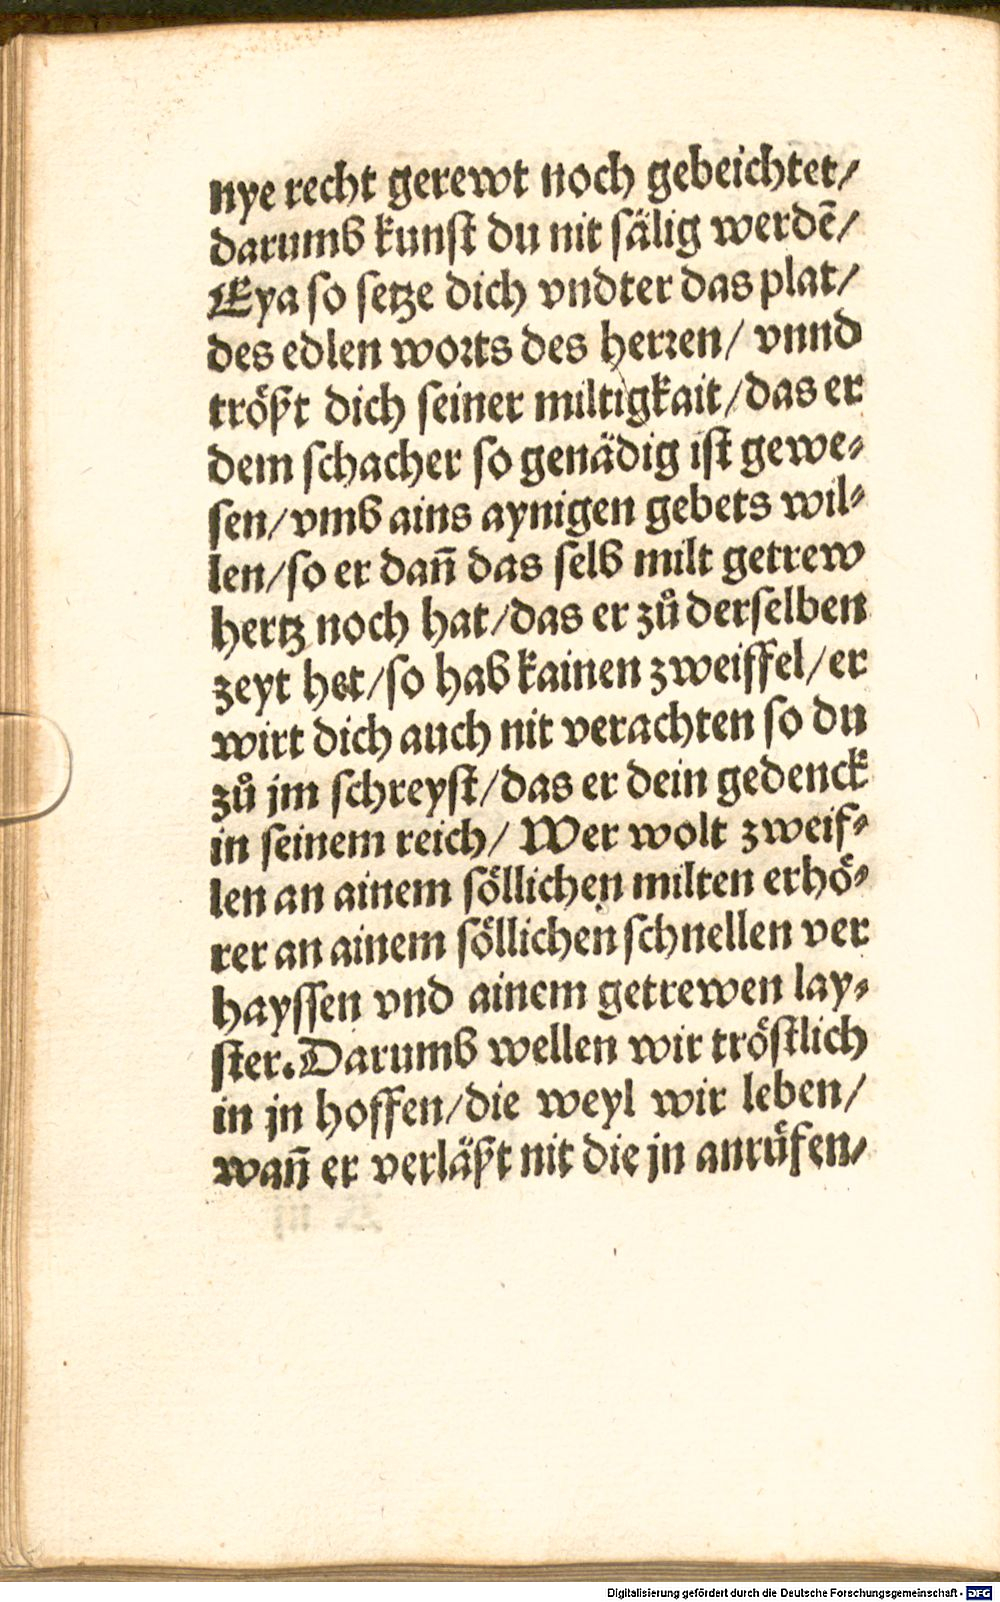 nye recht gerewt noch gebeichtet/
darumb kunst du nit sälig werdē/
Eya so setze dich vndter das plat/
des edlen worts des herren/ vnnd
trößt dich seiner miltigkait/das er
dem schacher so genädig ist gewe⸗
sen/vmb ains aynigen gebets wil⸗
len/so er dan̄ das selb milt getrew
hertz noch hat/das er zů derselben
zeyt het/so hab kainen zweiffel/er
wirt dich auch nit verachten so du
zů jm schreyst/das er dein gedenck
in seinem reich/ Wer wolt zweif⸗
len an ainem söllichen milten erhö⸗
rer an ainem söllichen schnellen ver
hayssen vnd ainem getrewen lay⸗
ster. Darumb wellen wir tröstlich
in jn hoffen/die weyl wir leben/
wan̄ er verläßt nit die jn anrüfen⸗
Digitalisierung gefördert durch die Deutsche Forschungsgemeinschaft - DFG